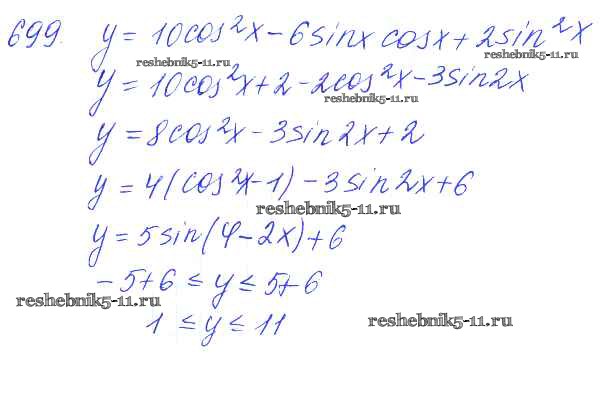 699. y = 10cos²x - 6sinx cosx + 2sin²x
reshebnik5-11.ru
y = 10cos²x + 2 - 2cos²x - 3sin2x
reshebnik5-11.ru
y = 8cos²x - 3sin2x + 2
y = 4(cos²x - 1) - 3sin2x + 6
reshebnik5-11.ru
y = 5sin(φ - 2x) + 6
-5+6 ≤ y ≤ 5+6
reshebnik5-11.ru
1 ≤ y ≤ 11
reshebnik5-11.ru